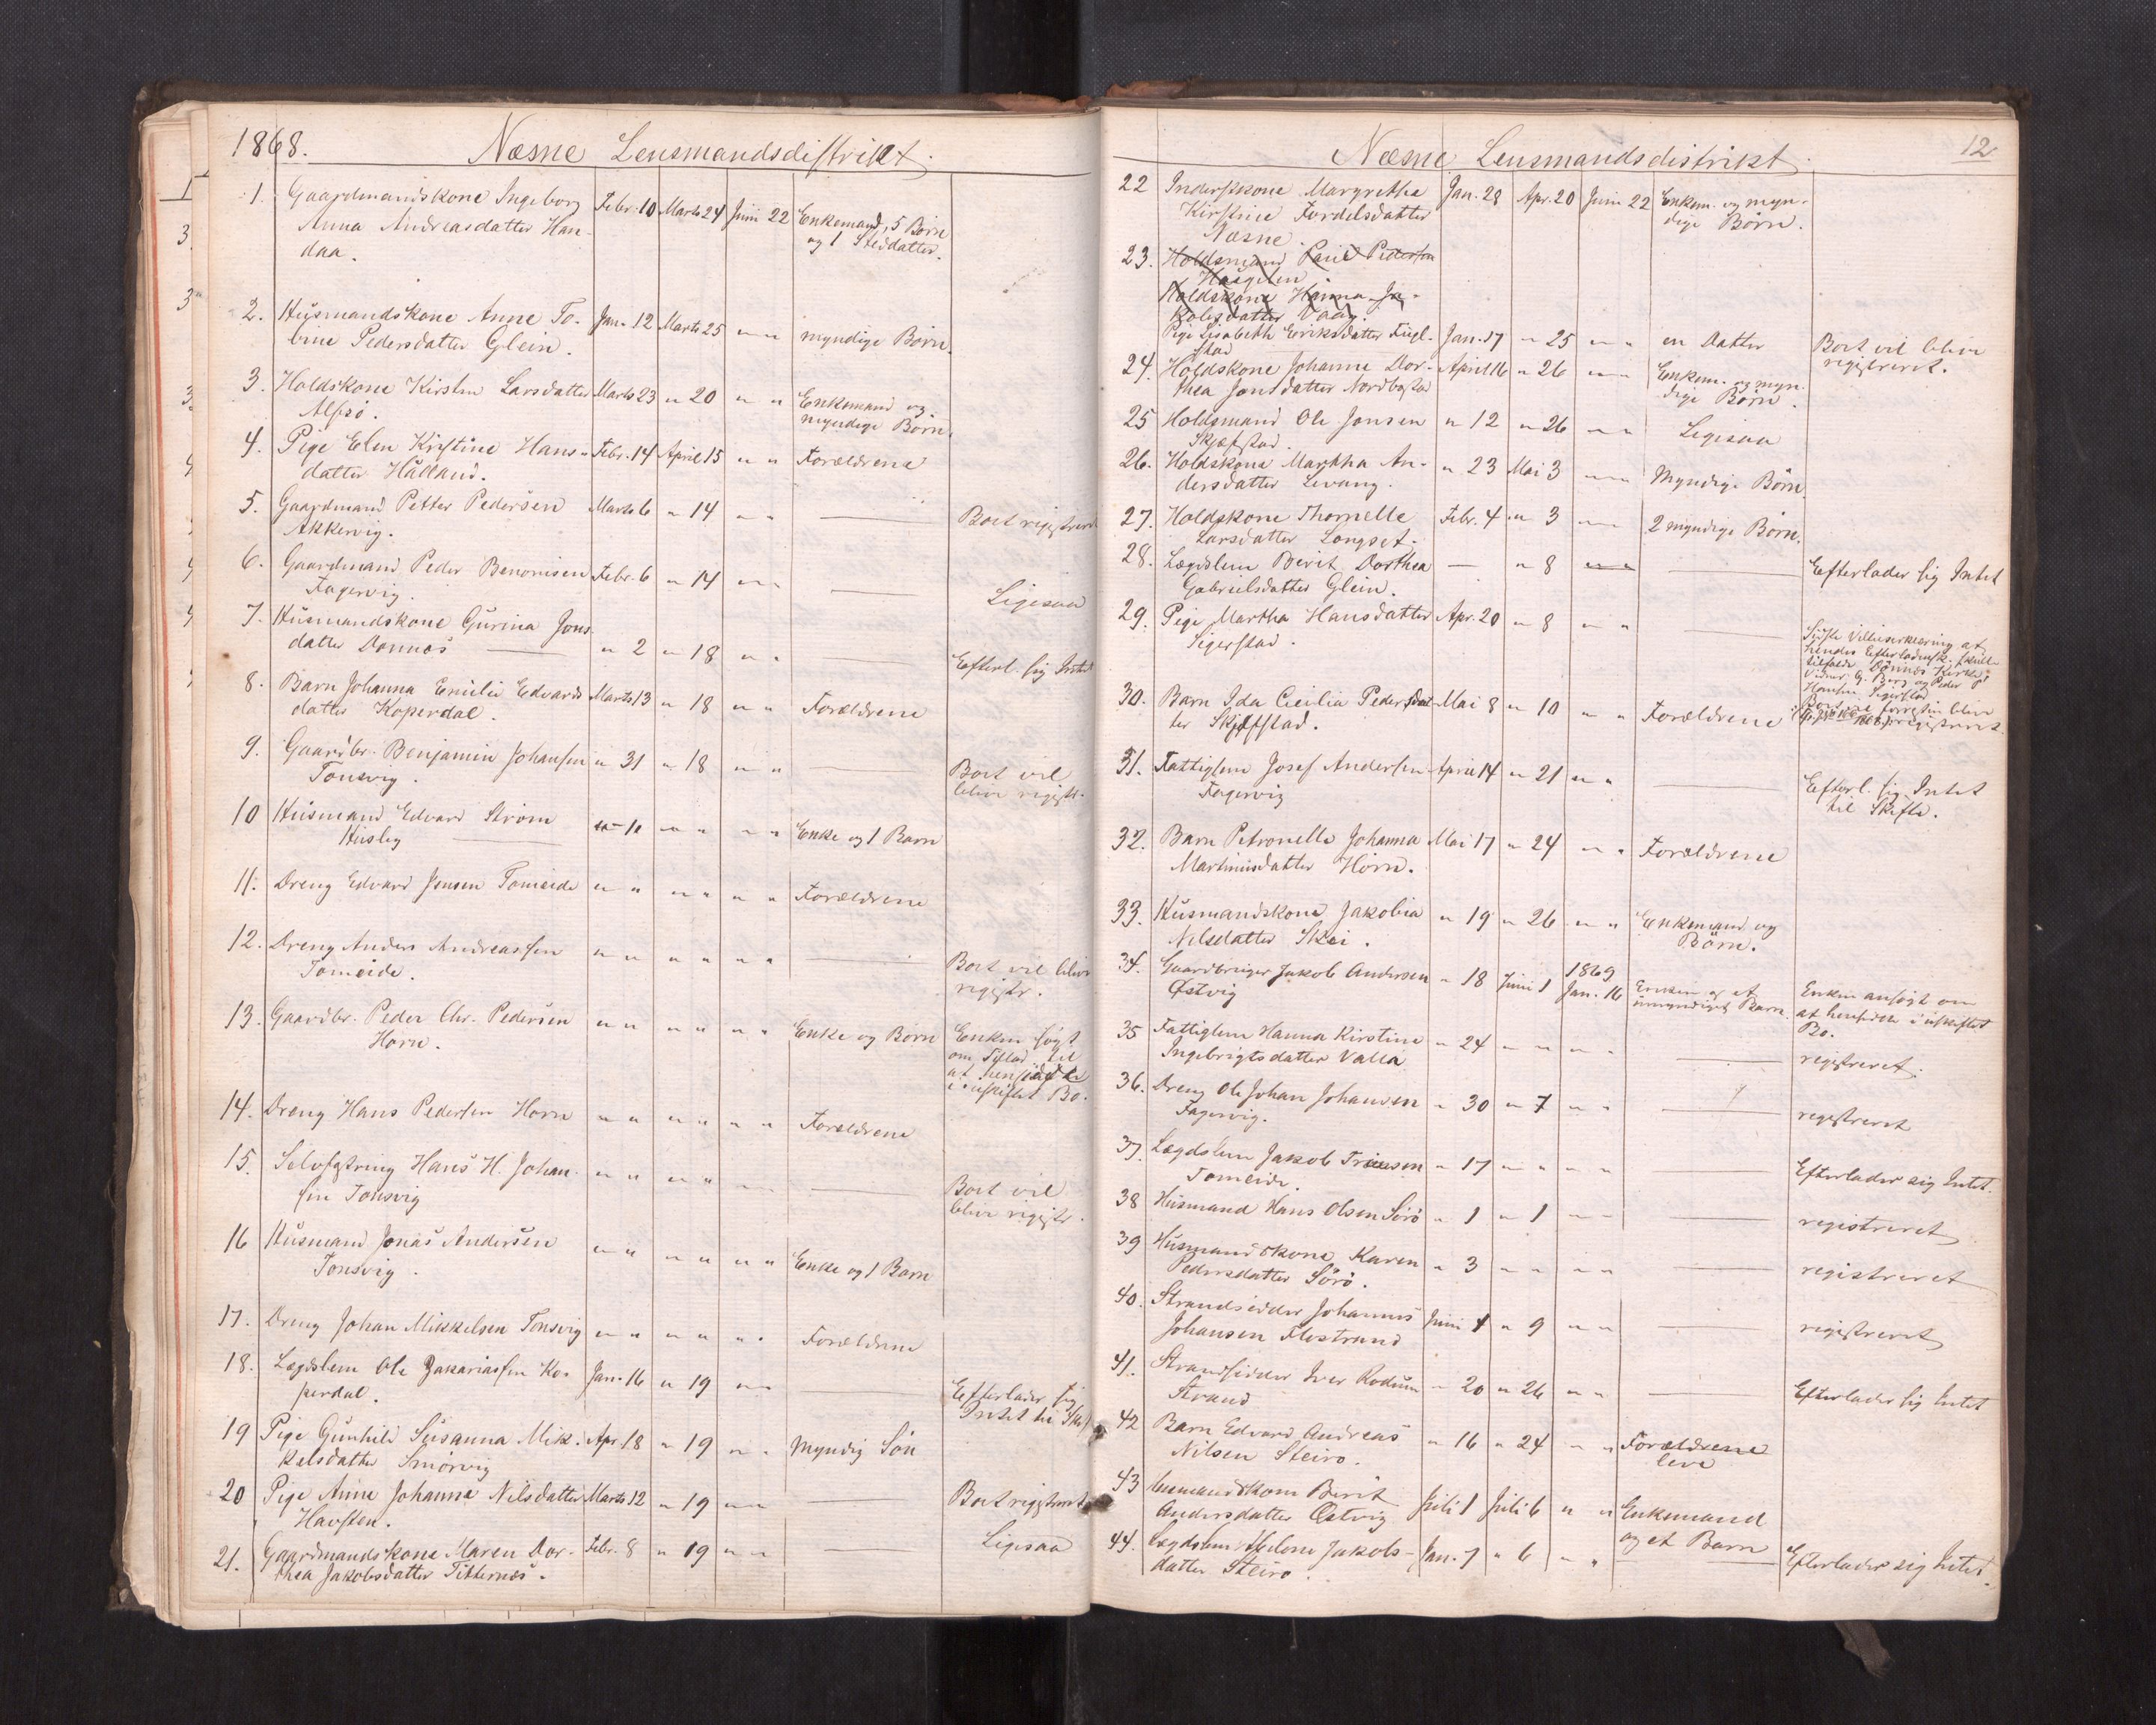 1868. Næsne Lensmandsdistrikt.
1. Gaardmandskone Ingeborg Febr. 10 Marts 24 Juni 22 Enkemand, 5 Børn
Anna Andreasdatter Han- og 1 Steddatter.
daa.
2. Husmandskone Anne To- Jan. 12 Marts 25 " " myndige Børn.
bine Pedersdatter Glein.
3. Holdskone Kirsten Larsdatter Marts 23 " 20 " " Enkemand og
Alfsø. myndige Børn.
4. Pige Elen Kristine Hans- Febr. 14 April 15 " " Forældrene
datter Hålland.
5. Gaardmand Petter Pedersen Marts 6 " 14 " " — Boet registreret
Akkervig.
6. Gaardmand Peder Benonisen Febr. 6 " 14 " " — Ligesaa
Fagervig.
7. Husmandskone Gurina Jons-
datter Dønnæs — " 2 " 18 " " — Efterl. sig Intet
8. Barn Johanna Emilie Edvards Marts 13 " 18 " " Forældrene
datter Koperdal.
9. Gaardbr. Benjamin Johansen " 31 " 18 " " — Boet vil
Tonsvig. blive registr.
10 Husmand Edvard Strøm " " " " " Enke og 1 Barn
Husby —
11. Dreng Edvard Jensen Tomeide " " " " " " Forældrene
12. Dreng Anders Andreassen " " " " " " — Boet vil blive
Tomeide. registr.
13. Gaardbr. Peder Chr. Pedersen " " " " " " Enke og Børn Enken søgt
Horn. om Tillad. til
at hensidde
i uskiftet Bo.
14. Dreng Hans Pedersen Horn " " " " " " Forældrene
15. Hans H. Johan- " " " " " " — Boet vil
sen Tonsvig blive registr.
16 Husmand Jonas Andersen " " " " " " Enke og 1 Barn
Tonsvig.
17. Dreng Johan Mikkelsen Tonsvig " " " " " " Forældrene
18. Lægdslem Ole Zakariassen Ko- Jan. 16 " 19 " " — Efterlader sig
perdal. Intet til Skif
19 Pige Gunhild Susanna Mik- Apr. 18 " 19 " " Myndig Søn
kelsdatter Smørvig
20 Pige Anne Johanna Nilsdatter Marts 12 " 19 " " — Boet registreret
Havsten.
21. Gaardmandskone Maren Dor- Febr. 8 " 19 " " — Ligesaa
thea Jakobsdatter Titternæs.
12
Næsne Lensmandsdistrikt.
22 Inderstkone Margrethe Jan. 28 Apr. 20 Juni 22 Enkem. og myn-
Kirstine Fordelsdatter dige Børn.
Næsne.
23. Holdsmand Paul Pedersen
Haugelen
Holdskone Hanna Ja-
kobsdatter Vaag.
Pige Lisabeth Eriksdatter Fugl- Jan. 17 " 25 " " en Datter Boet vil blive
stad registreret.
24. Holdskone Johanne Dor- April 16 " 26 " " Enkem. og myn-
thea Jonsdatter Nordbostad dige Børn.
25 Holdsmand Ole Jonsen " 12 " 26 " " Ligesaa
Skjefstad.
26. Holdskone Martha An- " 23 Mai 3 " " Myndige Børn.
dersdatter Levang.
27. Holdskone Thomelle Febr. 4 " 3 " " 2 myndige Børn.
Larsdatter Longset.
28. Lægdslem Berit Dorthea — " 8 " " — Efterlader sig Intet
Gabrielsdatter Glein.
29. Pige Martha Hansdatter Apr. 20 " 8 " " — Sidste Villieserklæring at
Sigerstad. hendes Efterladensk. skulle
tilfalde Dønnæs Kirke;
Vidner G. Berg og Peder P.
Hansen Sigerstad
Boet vil forresten blive
registreret.
30. Barn Ida Cecilia Pedersdat- Mai 8 " 10 " " Forældrene
ter Skjefstad.
31. Fattiglem Josef Andersen April 14 " 21 " " — Efterl. sig Intet
Fagervig til Skifte.
32. Barn Petronelle Johanna Mai 17 " 24 " " Forældrene
Martinusdatter Horn.
33. Husmandskone Jakobia " 19 " 26 " " Enkemand og
Nilsdatter Skei. Børn.
34. Gaardbruger Jakob Andersen " 18 Juni 1 1869 Jan. 16 Enken og et Enken ansøgt om
Østvig umyndigt Barn. at hensidde i uskiftet
Bo.
35 Fattiglem Hanna Kirstine " 24 " " " " — registreret.
Ingebrigtsdatter Valla
36. Dreng Ole Johan Johansen " 30 " 7 " " — registreret
Fagervig.
37. Lægdslem Jakob " 17 " " " " — Efterlader sig Intet.
Tomeide.
38 Husmand Hans Olsen Sørø " 1 " 1 " " — registreret
39 Husmandskone Karen " 3 " " " " — registreret
Pedersdatter Sørø.
40. Strandsidder Johannes Juni 4 " 9 " " — registreret
Johansen Flostrand
41. Strandsidder Iver Rodum " 20 " 26 " " — Efterlader sig Intet
Strand
42 Barn Edvard Andreas " 16 " 24 " " Forældrene
Nilsen Steiro. leve
43 Husmandskone Berit Juli 1 Juli 6 " " Enkemand
Andersdatter Østvig og et Barn
44. Lægdslem Helene Jakobs- Jan. 7 " 6 " " — Efterlader sig Intet.
datter Steiro.